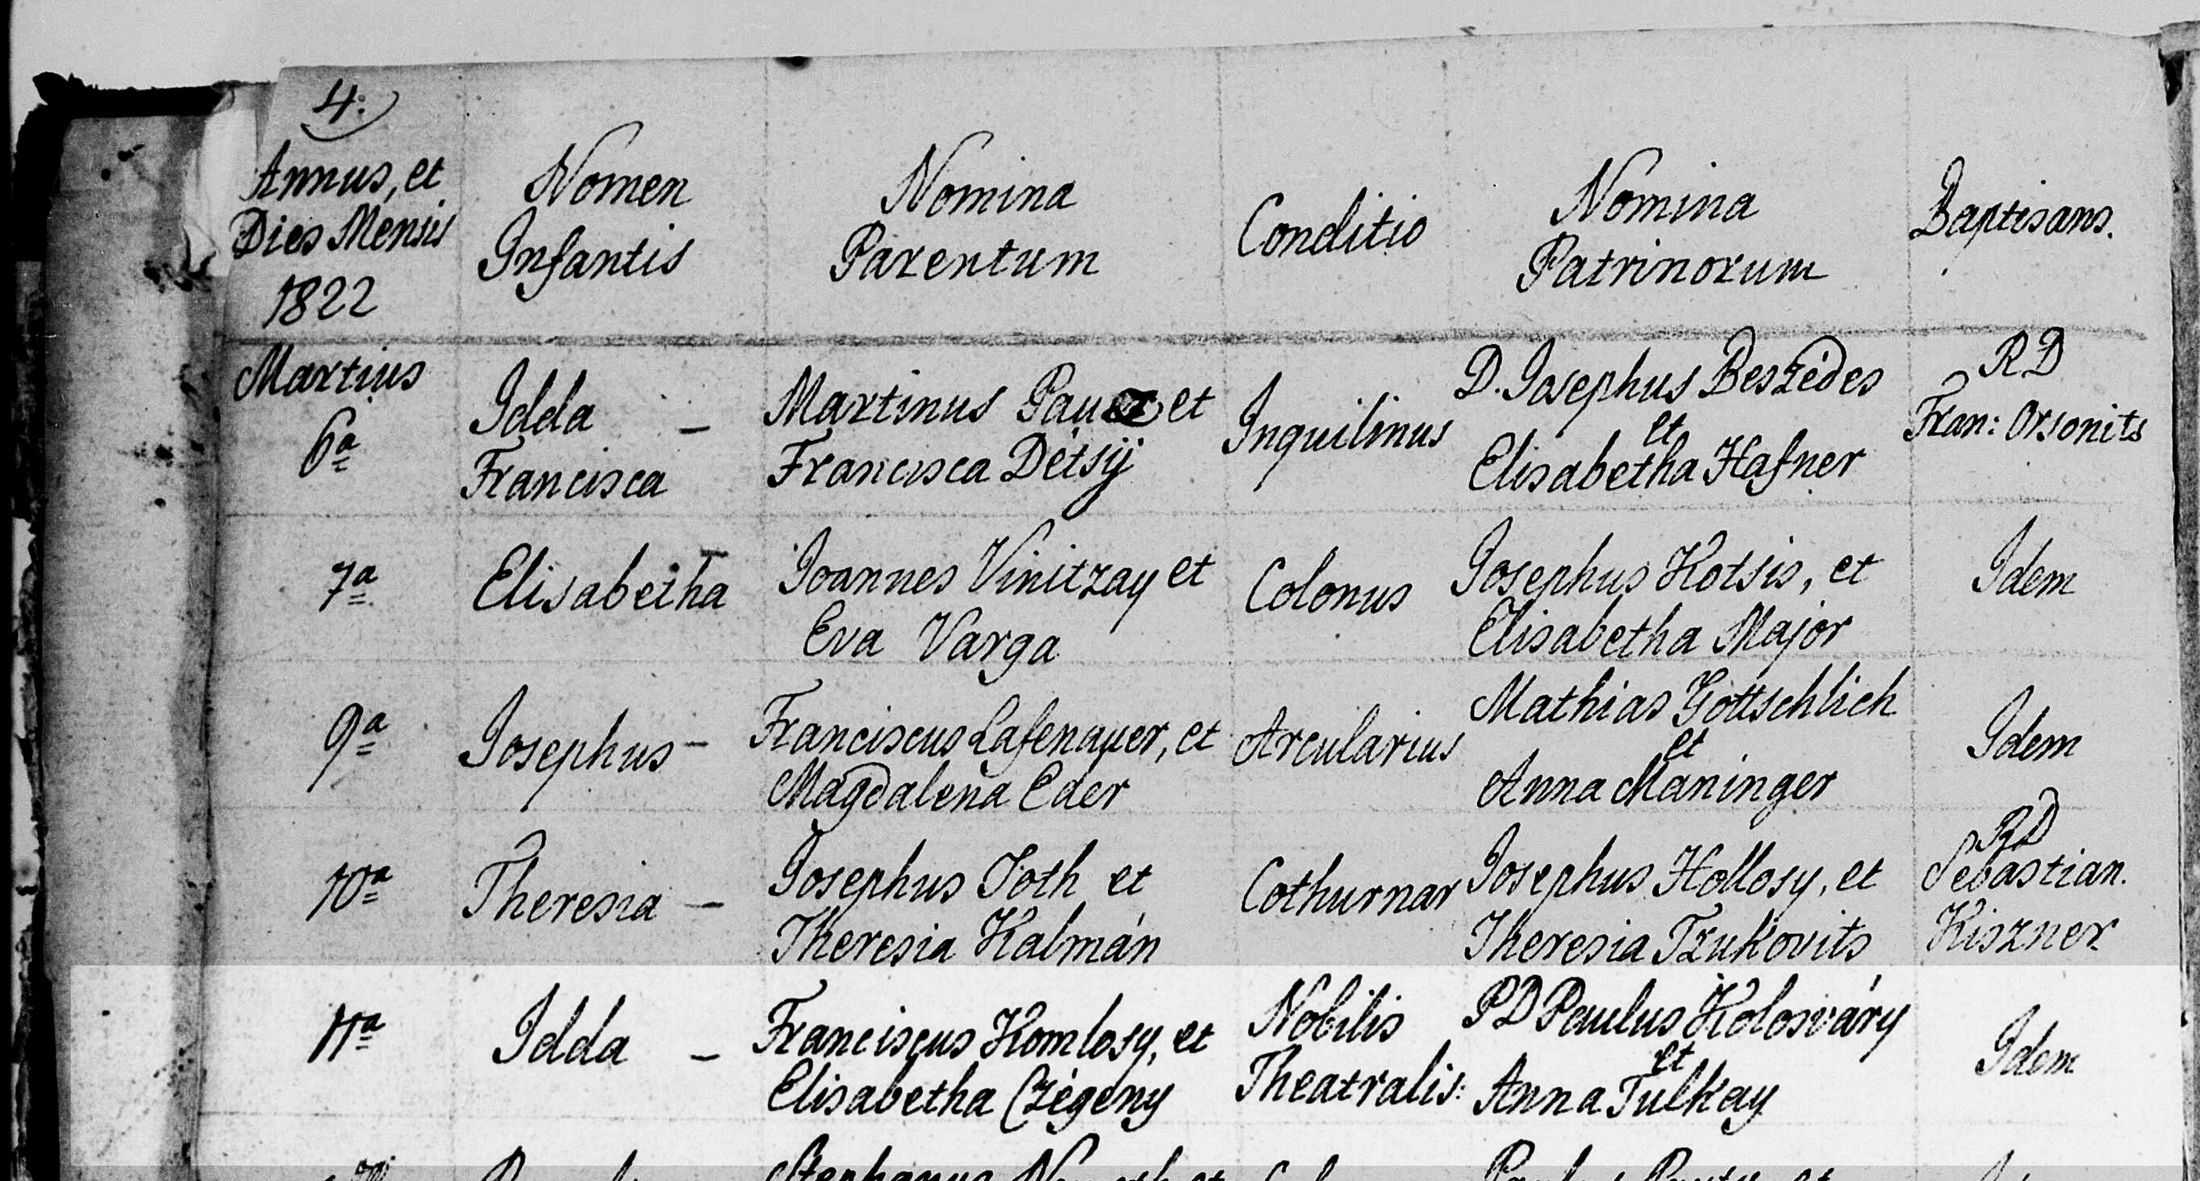 4:
Annus, et Dies Mensis 1822
Nomen Infantis
Nomina Parentum
Conditio
Nomina Patrinorum
Baptisans.
Martius
6a
Idda –
Francisca
Martinus Pauer et
Francisca Détsÿ
Inquilinus
D. Josephus Beszédes
et
Elisabetha Hafner
RD
Fran: Orsonits
7a
Elisabetha
Joannes Vinitzay et
Eva Varga
Colonus
Josephus Kotsis, et
Elisabetha Major
Idem
9a
Josephus –
Franciscus Lafenauer, et
Magdalena Eder
Arcularius
Mathias Gottschlich
et
Anna Maninger
Idem
10a
Theresia –
Josephus Toth et
Theresia Kalmán
Cothurnar
Josephus Hollosy, et
Theresia Tzukovits
RD
Sebastian.
Kiszner
11a
Idda –
Franciscus Komlosy, et
Elisabetha Czégény
Nobilis
Theatralis:
PD Paulus Kolosváry
et
Anna Tulkay
Idem